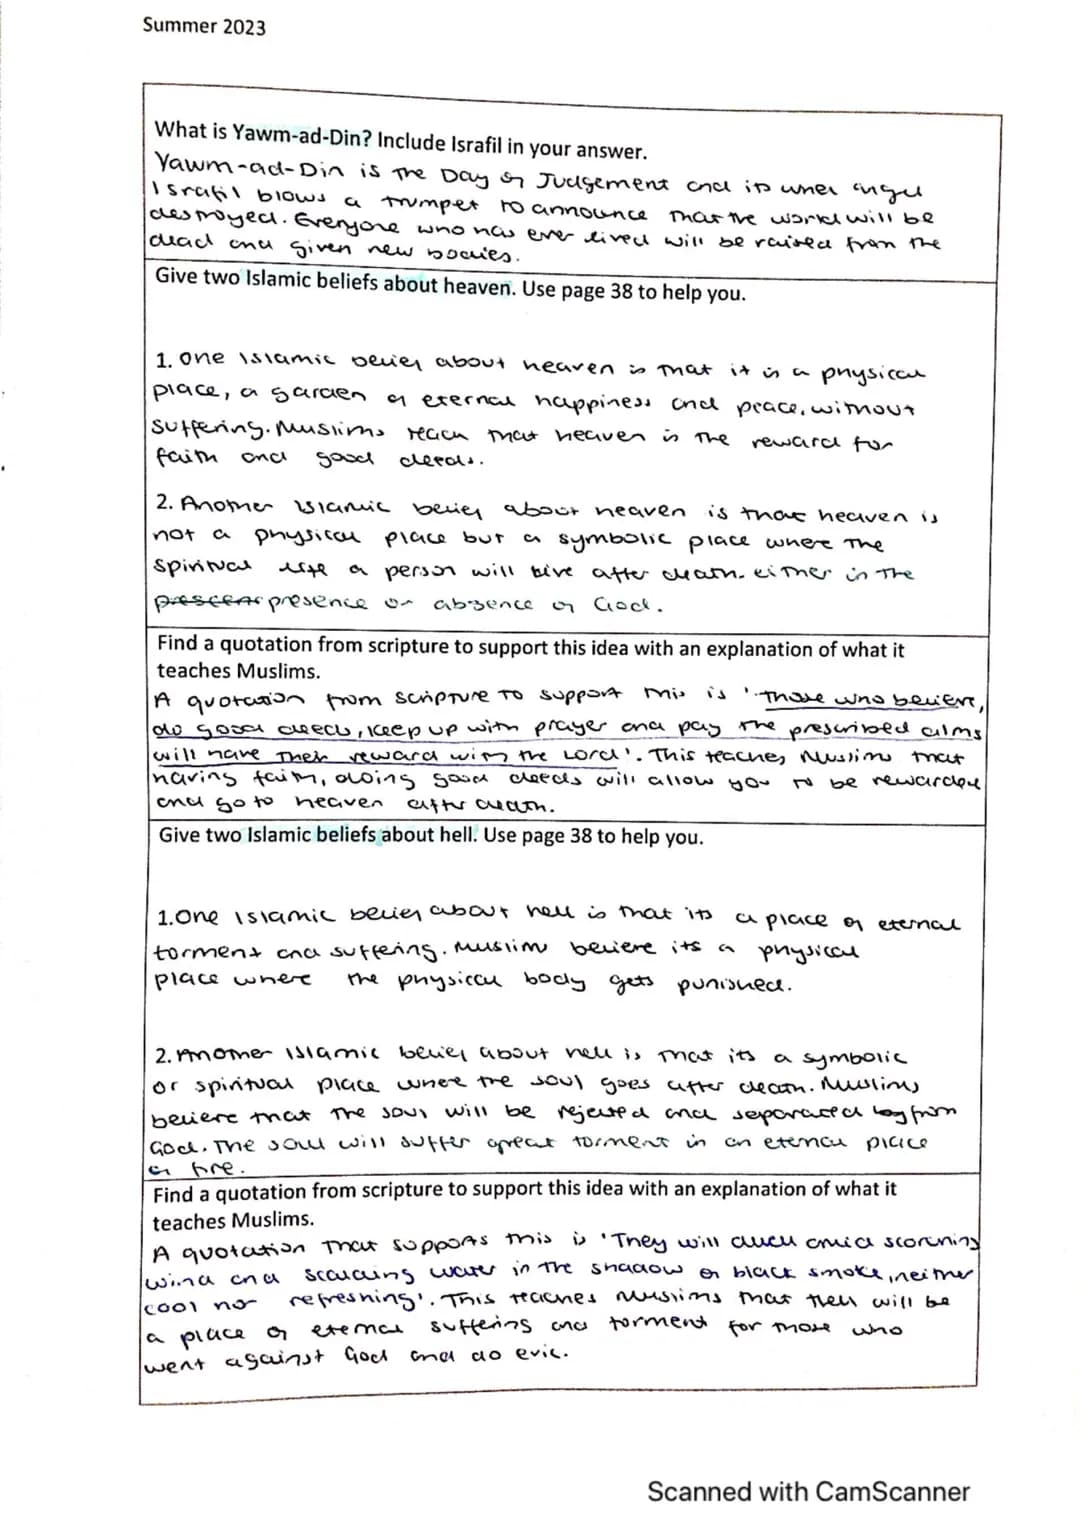 Summer 2023
What is Yawm-ad-Din? Include Israfil in your answer.
Yawm-ad-Din is the Day of Judgement and its when angel
Israfil blows a trumpet to announce that the world will be
destroyed. Everyone who has ever lived will be raised from the
dead and given new bodies.
Give two Islamic beliefs about heaven. Use page 38 to help you.
1. One Islamic belief about heaven is that it is a physical
place, a garden of eternal happiness and peace, without
suffering. Muslims teach that heaven is the reward for
faith and good deeds.
2. Another Islamic belief about heaven is that heaven is
not a physical place but a symbolic place where the
spiritual life a person will live after death. either in the
presence or absence of God.
Find a quotation from scripture to support this idea with an explanation of what it
teaches Muslims.
A quotation from scripture to support this is 'Those who believe,
do good deeds, keep up with prayer and pay the prescribed alms
will have their reward with the Lord'. This teaches Muslims that
having faith, doing good deeds will allow you to be rewarded
and go to heaven after death.
Give two Islamic beliefs about hell. Use page 38 to help you.
1. One Islamic belief about hell is that its a place of eternal
torment and suffering. Muslim believe its a physical
place where the physical body gets punished.
2. Another Islamic belief about hell is that its a symbolic
or spiritual place where the soul goes after death. Muslims
believe that the soul will be rejected and separated by from
God. The soul will suffer great torment in an eternal place
of fire.
Find a quotation from scripture to support this idea with an explanation of what it
teaches Muslims.
A quotation that supports this is 'They will dwell amid scorching
wind and scalding water in the shadow of black smoke, neither
cool nor refreshing'. This teaches Muslims that Hell will be
a place of eternal suffering and torment for those who
went against God and do evil.
Scanned with CamScanner